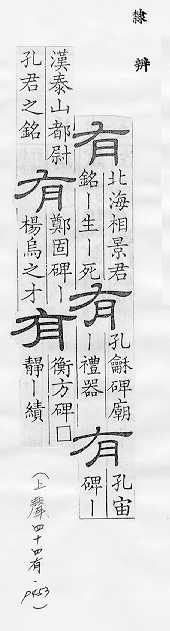 隸辨
有
北海相景君
銘ー生ー死
有
孔龢碑廟
ー禮器
有
孔宙
碑ー
漢泰山都尉
孔君之銘
有
鄭固碑ー
楊烏之才
有
衡方碑□
靜ー績
(上聲四十四有.p453)